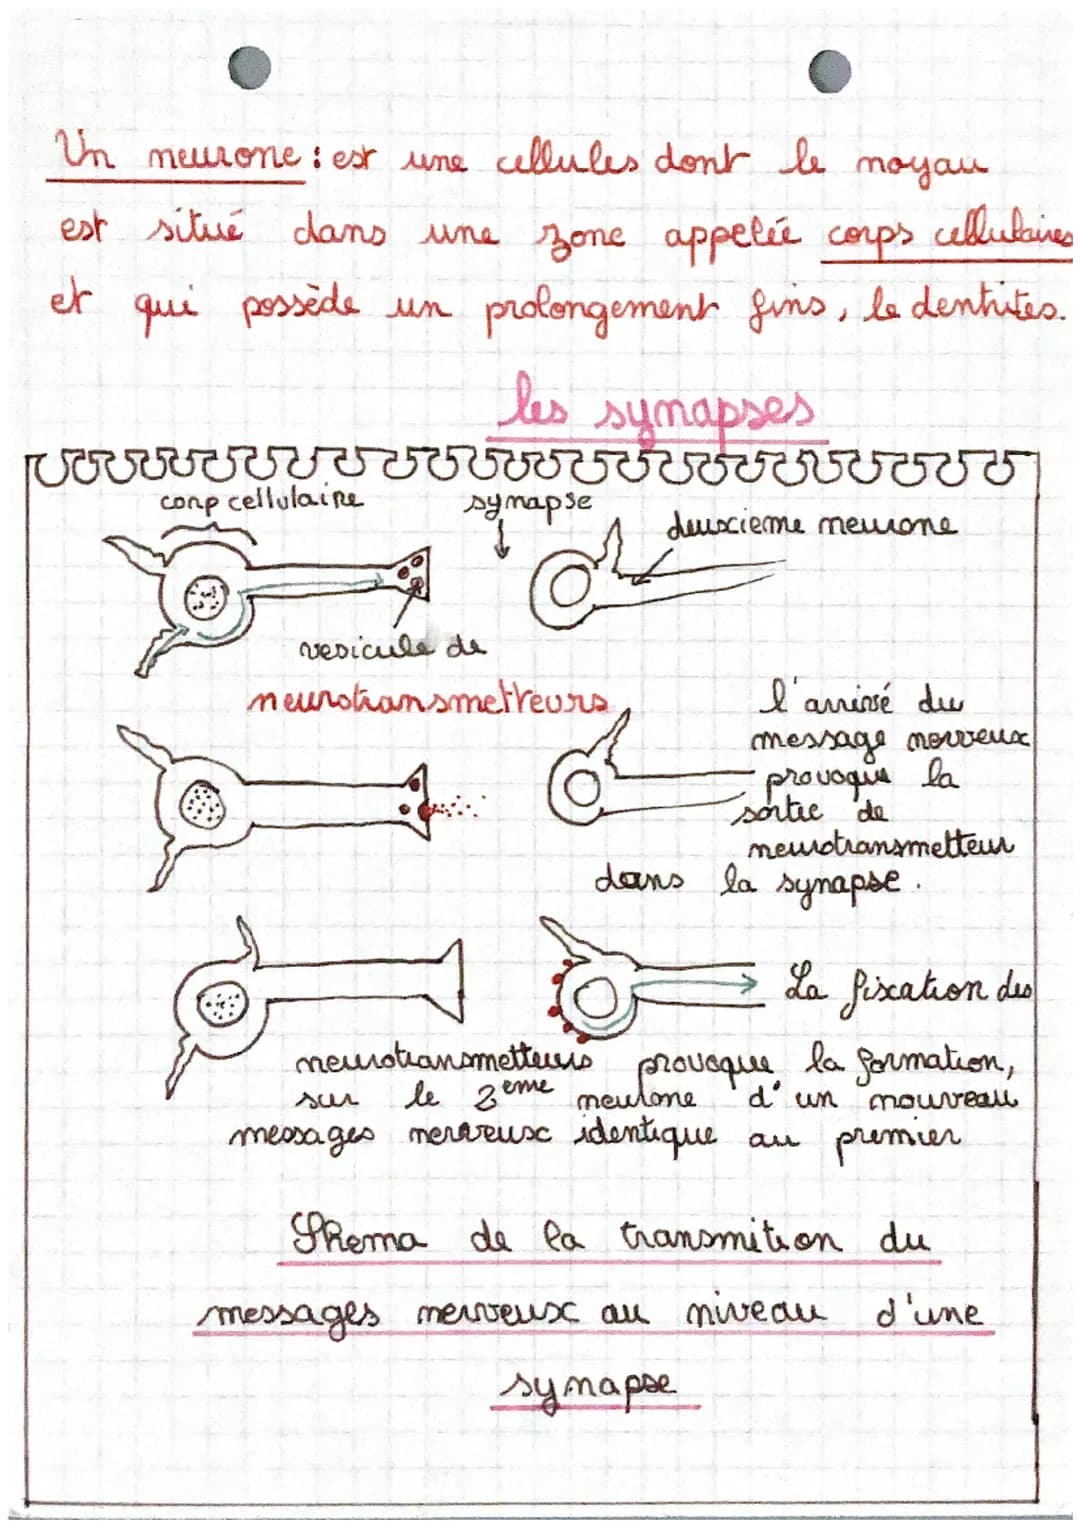 Un neurone : est une cellules dont le noyau
est situé dans une zone appelée corps cellulaires
et qui possède un prolongement fins, le dentrites.
les synapses
corp cellulaire
synapse
deuxieme neurone
vesicule de
neurotransmetteurs
l'arrivé du
message nerveux
provoque la
sortie de
neurotransmetteur
dans la synapse.
La fixation des
neurotransmetteurs provoque la formation,
sur le 2eme neurone d'un nouveau
messages nerveux identique au premier
Shema de la transmition du
messages nerveux au niveau d'une
synapse